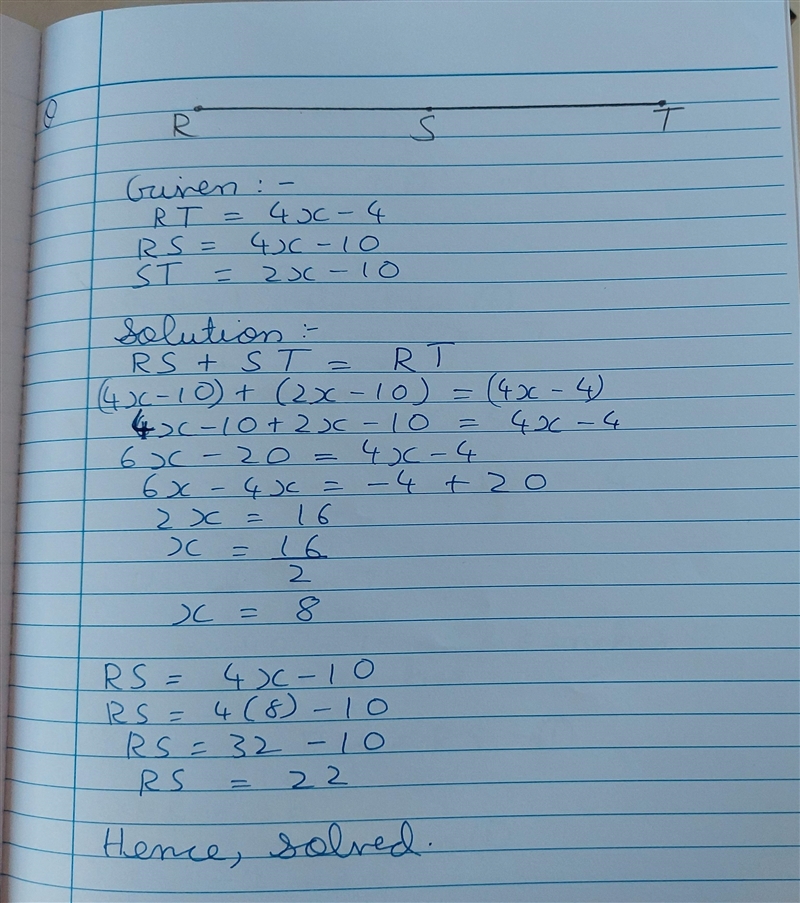 Q
R S T
Given :-
RT = 4x - 4
RS = 4x - 10
ST = 2x - 10
Solution :-
RS + ST = RT
(4x - 10) + (2x - 10) = (4x - 4)
4x - 10 + 2x - 10 = 4x - 4
6x - 20 = 4x - 4
6x - 4x = -4 + 20
2x = 16
x = 16/2
x = 8
RS = 4x - 10
RS = 4(8) - 10
RS = 32 - 10
RS = 22
Hence, solved.